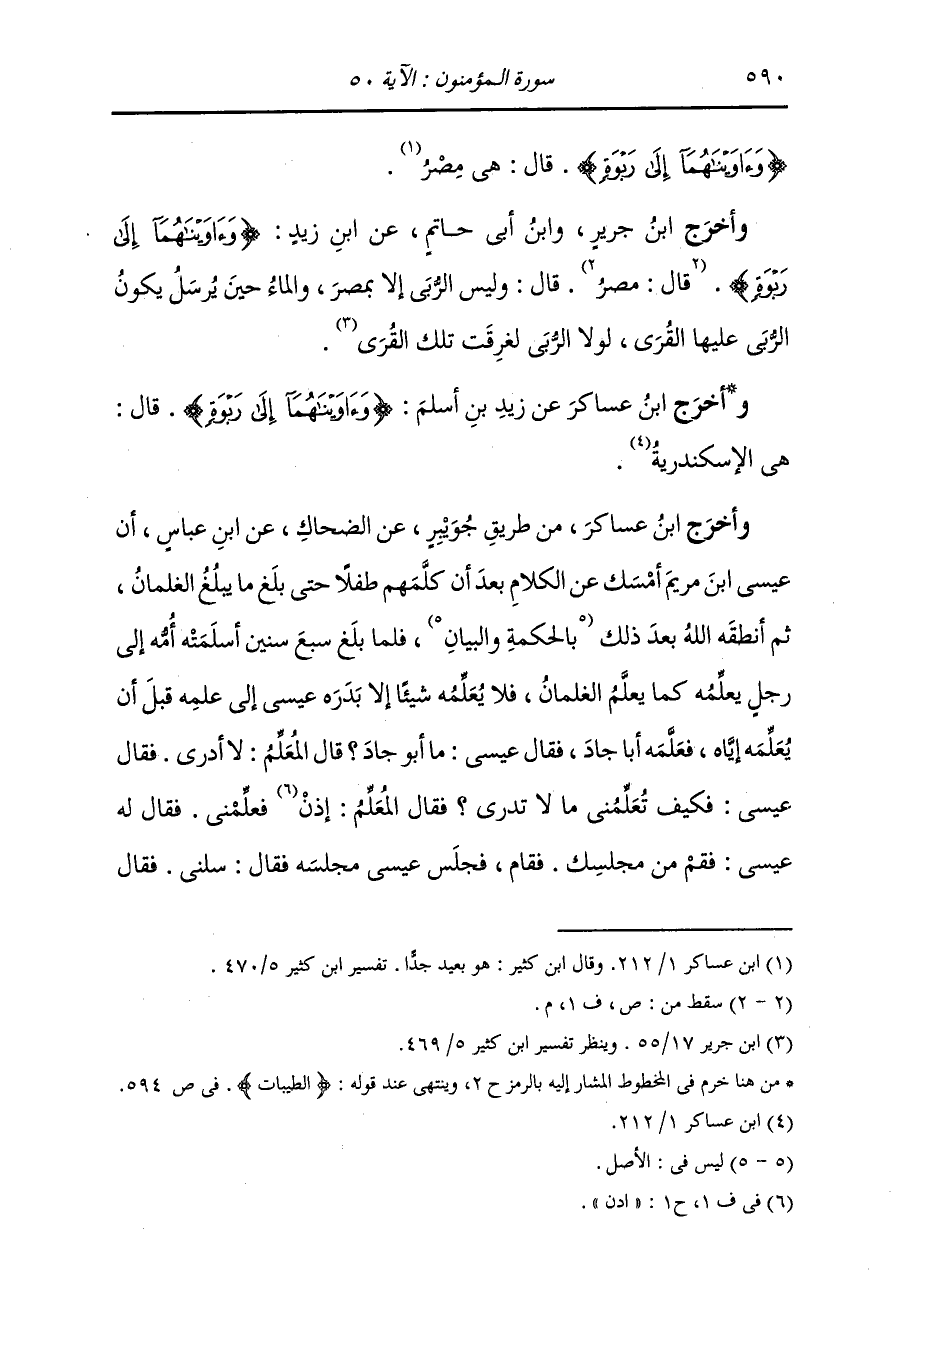 ٥٩٠ سورة المؤمنون : الآية ٥٠
﴿وَءَاوَيْنَٰهُمَآ إِلَىٰ رَبْوَةٍ﴾ . قال : هى مِصْرُ(١) .
وأخرَج ابنُ جريرٍ ، وابنُ أبى حاتمٍ ، عن ابنِ زيدٍ : ﴿وَءَاوَيْنَٰهُمَآ إِلَىٰ
رَبْوَةٍ﴾ . (٢قال : مصرُ٢) . قال : وليس الرُّبَى إلا بمصرَ ، والماءُ حينَ يُرسَلُ يكونُ
الرُّبَى عليها القُرَى ، لولا الرُّبَى لغرِقَت تلك القُرَى(٣) .
و*أخرَج ابنُ عساكرَ عن زيدِ بنِ أسلمَ : ﴿وَءَاوَيْنَٰهُمَآ إِلَىٰ رَبْوَةٍ﴾ . قال :
هى الإسكندريةُ(٤) .
وأخرَج ابنُ عساكرَ ، من طريقِ جُوَيْبِرٍ ، عن الضحاكِ ، عن ابنِ عباسٍ ، أن
عيسى ابنَ مريمَ أمْسَك عن الكلامِ بعدَ أن كلَّمَهم طفلًا حتى بلَغ ما يبلُغُ الغلمانُ ،
ثم أنطقَه اللهُ بعدَ ذلك (٥بالحكمةِ والبيانِ٥) ، فلما بلَغ سبعَ سنين أسلَمَتْه أُمُّه إلى
رجلٍ يعلِّمُه كما يعلَّمُ الغلمانُ ، فلا يُعَلِّمُه شيئًا إلا بَدَرَه عيسى إلى علمِه قبلَ أن
يُعَلِّمَه إيَّاه ، فعَلَّمَه أبا جادَ ، فقال عيسى : ما أبو جادَ ؟ قال المُعَلِّمُ : لا أدرى . فقال
عيسى : فكيف تُعَلِّمُنى ما لا تدرى ؟ فقال المُعَلِّمُ : إذنْ(٦) فعلِّمْنى . فقال له
عيسى : فقمْ من مجلسِك . فقام ، فجلَس عيسى مجلسَه فقال : سلنى . فقال
(١) ابن عساكر ١/ ٢١٢. وقال ابن كثير : هو بعيد جدًّا . تفسير ابن كثير ٥/ ٤٧٠ .
(٢ - ٢) سقط من : ص ، ف ١، م .
(٣) ابن جرير ١٧/ ٥٥ . وينظر تفسير ابن كثير ٥/ ٤٦٩.
* من هنا خرم فى المخطوط المشار إليه بالرمز ح ٢، وينتهى عند قوله : ﴿ الطيبات ﴾ . فى ص ٥٩٤.
(٤) ابن عساكر ١/ ٢١٢.
(٥ - ٥) ليس فى : الأصل .
(٦) فى ف ١، ح١ : « ادن » .